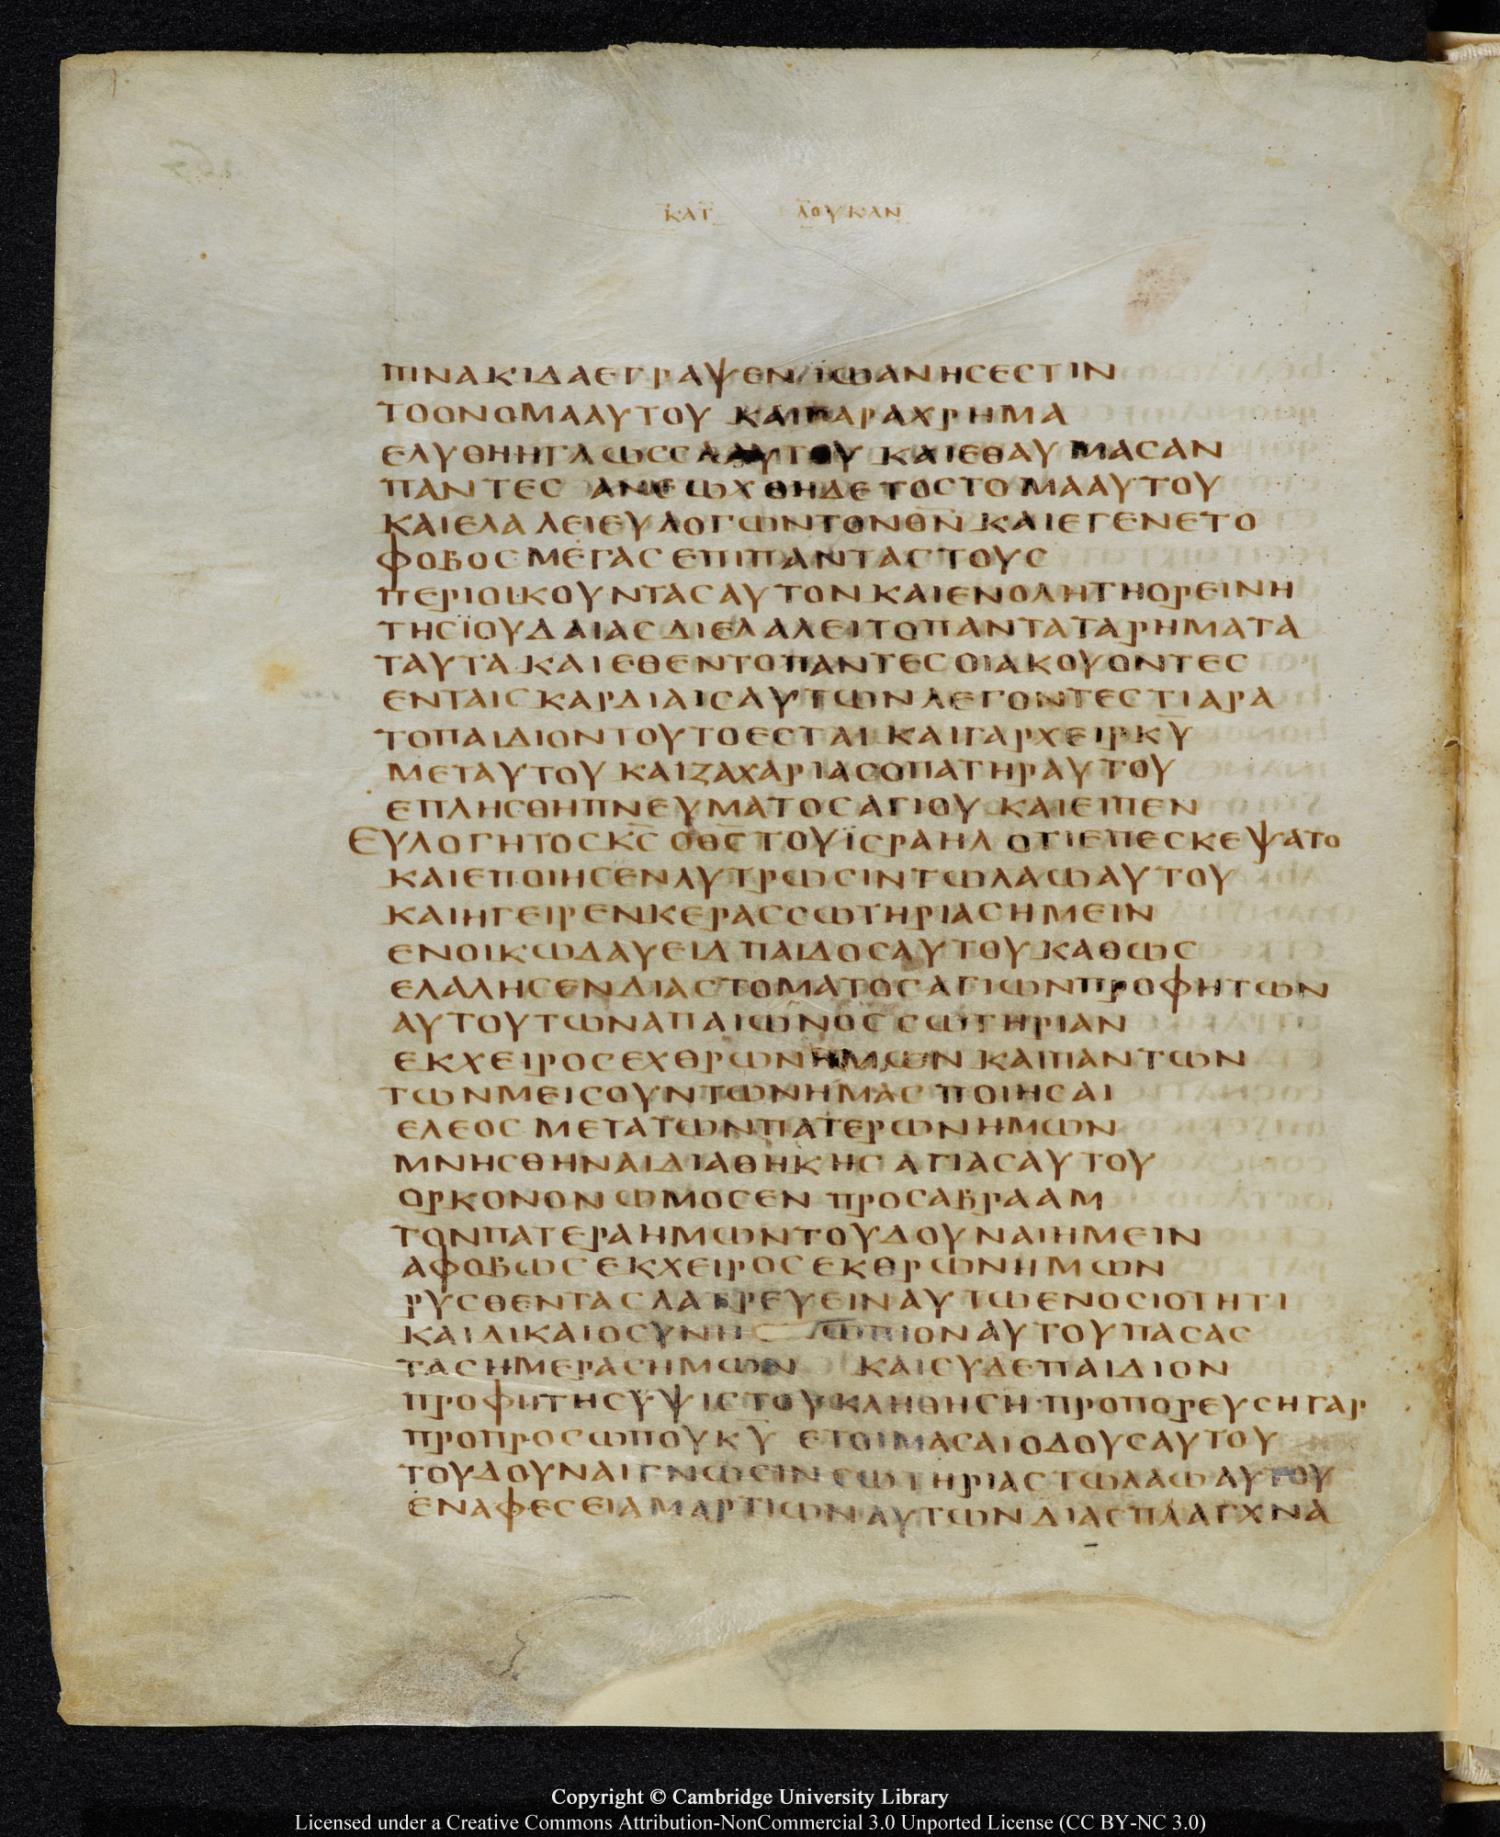 ΚΑΤ ΛΟΥΚΑΝ
ΠΙΝΑΚΙΔΑΕΓΡΑΨΕΝ ΙΩΑΝΗСΕСΤΙΝ
ΤΟΟΝΟΜΑΑΥΤΟΥ ΚΑΙΠΑΡΑΧΡΗΜΑ
ΕΛΥΘΗΗΓΛΩССΑΑΥΤΟΥ ΚΑΙΕΘΑΥΜΑСΑΝ
ΠΑΝΤΕС ΑΝΕΩΧΘΗΔΕΤΟСΤΟΜΑΑΥΤΟΥ
ΚΑΙΕΛΑΛΕΙΕΥΛΟΓΩΝΤΟΝΘΝ ΚΑΙΕΓΕΝΕΤΟ
ΦΟΒΟСΜΕΓΑСΕΠΙΠΑΝΤΑСΤΟΥС
ΠΕΡΙΟΙΚΟΥΝΤΑСΑΥΤΟΝΚΑΙΕΝΟΛΗΤΗΟΡΕΙΝΗ
ΤΗСΪΟΥΔΑΙΑСΔΙΕΛΑΛΕΙΤΟΠΑΝΤΑΤΑΡΗΜΑΤΑ
ΤΑΥΤΑ ΚΑΙΕΘΕΝΤΟΠΑΝΤΕСΟΙΑΚΟΥΟΝΤΕС
ΕΝΤΑΙСΚΑΡΔΙΑΙСΑΥΤΩΝΛΕΓΟΝΤΕСΤΙΑΡΑ
ΤΟΠΑΙΔΙΟΝΤΟΥΤΟΕСΤΑΙ ΚΑΙΓΑΡΧΕΙΡΚΥ
ΜΕΤΑΥΤΟΥ ΚΑΙΖΑΧΑΡΙΑСΟΠΑΤΗΡΑΥΤΟΥ
ΕΠΛΗСΘΗΠΝΕΥΜΑΤΟСΑΓΙΟΥ ΚΑΙΕΙΠΕΝ
ΕΥΛΟΓΗΤΟСΚС ΟΘСΤΟΥΪСΡΑΗΛ ΟΤΙΕΠΕСΚΕΨΑΤΟ
ΚΑΙΕΠΟΙΗСΕΝΛΥΤΡΩСΙΝΤΩΛΑΩΑΥΤΟΥ
ΚΑΙΗΓΕΙΡΕΝΚΕΡΑССΩΤΗΡΙΑСΗΜΕΙΝ
ΕΝΟΙΚΩΔΑΥΕΙΔ ΠΑΙΔΟСΑΥΤΟΥ ΚΑΘΩС
ΕΛΑΛΗСΕΝΔΙΑСΤΟΜΑΤΟСΑΓΙΩΝΠΡΟΦΗΤΩΝ
ΑΥΤΟΥΤΩΝΑΠΑΙΩΝΟС СΩΤΗΡΙΑΝ
ΕΚΧΕΙΡΟСΕΧΘΡΩΝΗΜΩΝ ΚΑΙΠΑΝΤΩΝ
ΤΩΝΜΕΙСΟΥΝΤΩΝΗΜΑС ΠΟΙΗСΑΙ
ΕΛΕΟС ΜΕΤΑΤΩΝΠΑΤΕΡΩΝΗΜΩΝ
ΜΝΗСΘΗΝΑΙΔΙΑΘΗΚΗС ΑΓΙΑСΑΥΤΟΥ
ΟΡΚΟΝΟΝΩΜΟСΕΝ ΠΡΟСΑΒΡΑΑΜ
ΤΟΝΠΑΤΕΡΑΗΜΩΝΤΟΥΔΟΥΝΑΙΗΜΕΙΝ
ΑΦΟΒΩС ΕΚΧΕΙΡΟС ΕΚΘΡΩΝΗΜΩΝ
ΡΥСΘΕΝΤΑСΛΑΤΡΕΥΕΙΝΑΥΤΩΕΝΟСΙΟΤΗΤΙ
ΚΑΙΔΙΚΑΙΟСΥΝΗ ΩΠΙΟΝΑΥΤΟΥΠΑСΑС
ΤΑСΗΜΕΡΑСΗΜΩΝ ΚΑΙСΥΔΕΠΑΙΔΙΟΝ
ΠΡΟΦΗΤΗСΥΨΙСΤΟΥΚΛΗΘΗСΗ ΠΡΟΠΟΡΕΥСΗΓΑΡ
ΠΡΟΠΡΟСΩΠΟΥΚΥ ΕΤΟΙΜΑСΑΙΟΔΟΥСΑΥΤΟΥ
ΤΟΥΔΟΥΝΑΙΓΝΩСΙΝСΩΤΗΡΙΑСΤΩΛΑΩΑΥΤΟΥ
ΕΝΑΦΕСΕΙΑΜΑΡΤΙΩΝΑΥΤΩΝΔΙΑСΠΛΑΓΧΝΑ
Copyright © Cambridge University Library
Licensed under a Creative Commons Attribution-NonCommercial 3.0 Unported License (CC BY-NC 3.0)